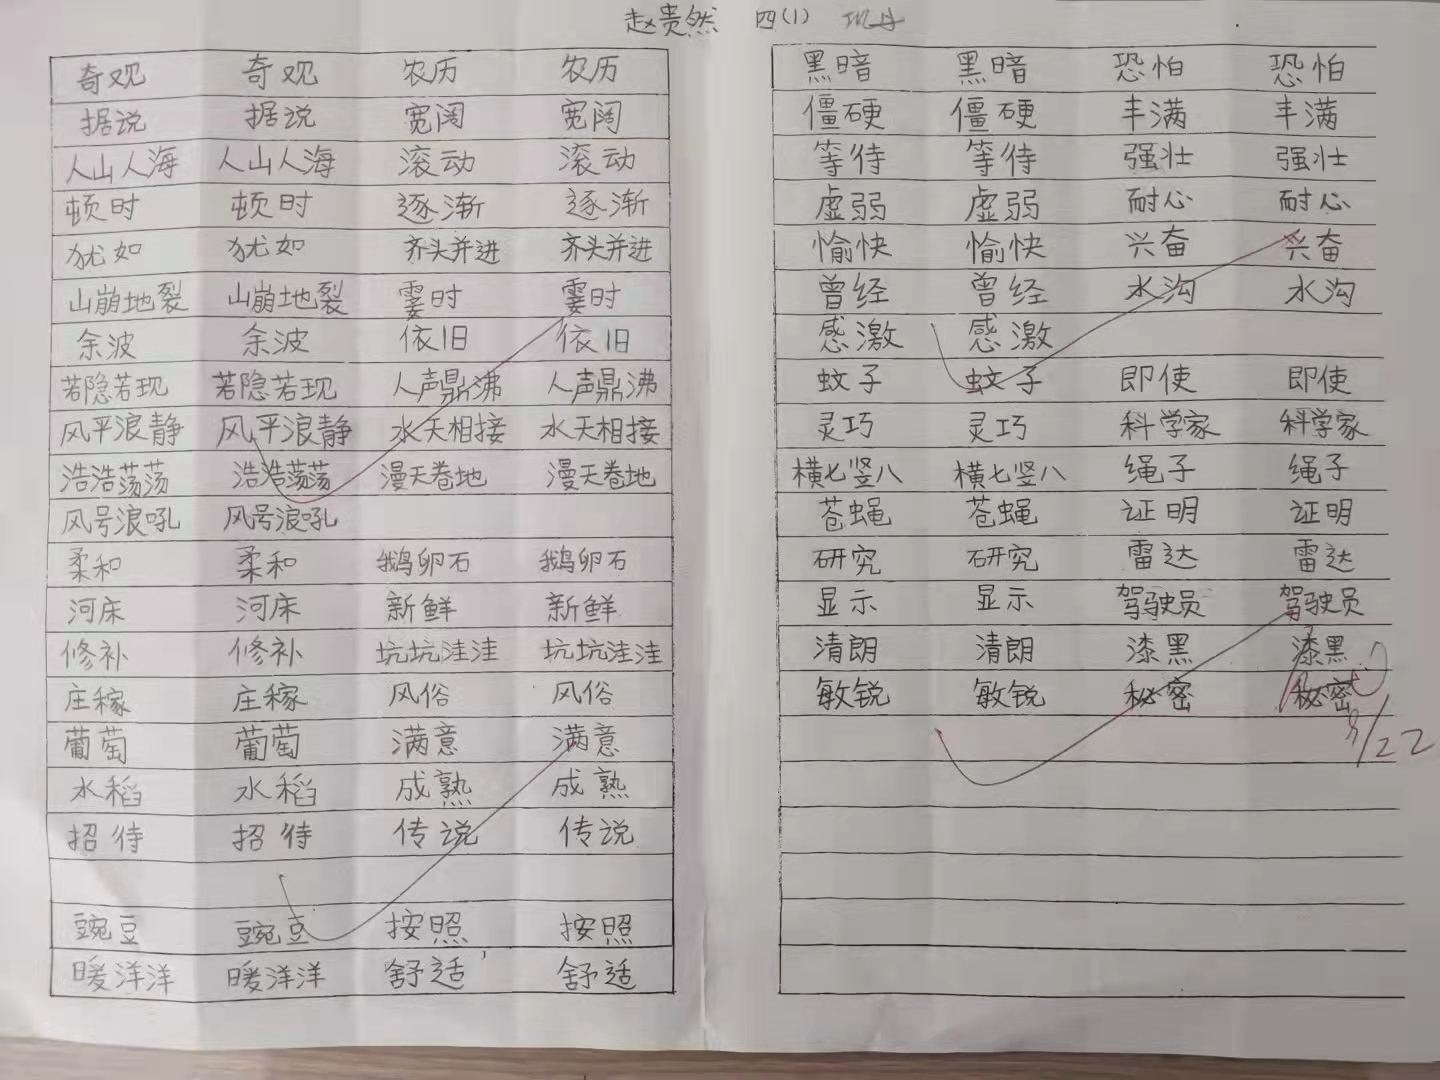 赵贵然 四(1)
奇观 奇观 农历 农历
据说 据说 宽阔 宽阔
人山人海 人山人海 滚动 滚动
顿时 顿时 逐渐 逐渐
犹如 犹如 齐头并进 齐头并进
山崩地裂 山崩地裂 霎时 霎时
余波 余波 依旧 依旧
若隐若现 若隐若现 人声鼎沸 人声鼎沸
风平浪静 风平浪静 水天相接 水天相接
浩浩荡荡 浩浩荡荡 漫天卷地 漫天卷地
风号浪吼 风号浪吼
柔和 柔和 鹅卵石 鹅卵石
河床 河床 新鲜 新鲜
修补 修补 坑坑洼洼 坑坑洼洼
庄稼 庄稼 风俗 风俗
葡萄 葡萄 满意 满意
水稻 水稻 成熟 成熟
招待 招待 传说 传说
豌豆 豌豆 按照 按照
暖洋洋 暖洋洋 舒适 舒适
黑暗 黑暗 恐怕 恐怕
僵硬 僵硬 丰满 丰满
等待 等待 强壮 强壮
虚弱 虚弱 耐心 耐心
愉快 愉快 兴奋 兴奋
曾经 曾经 水沟 水沟
感激 感激
蚊子 蚊子 即使 即使
灵巧 灵巧 科学家 科学家
横七竖八 横七竖八 绳子 绳子
苍蝇 苍蝇 证明 证明
研究 研究 雷达 雷达
显示 显示 驾驶员 驾驶员
清朗 清朗 漆黑 漆黑
敏锐 敏锐 秘密 秘密
9/22